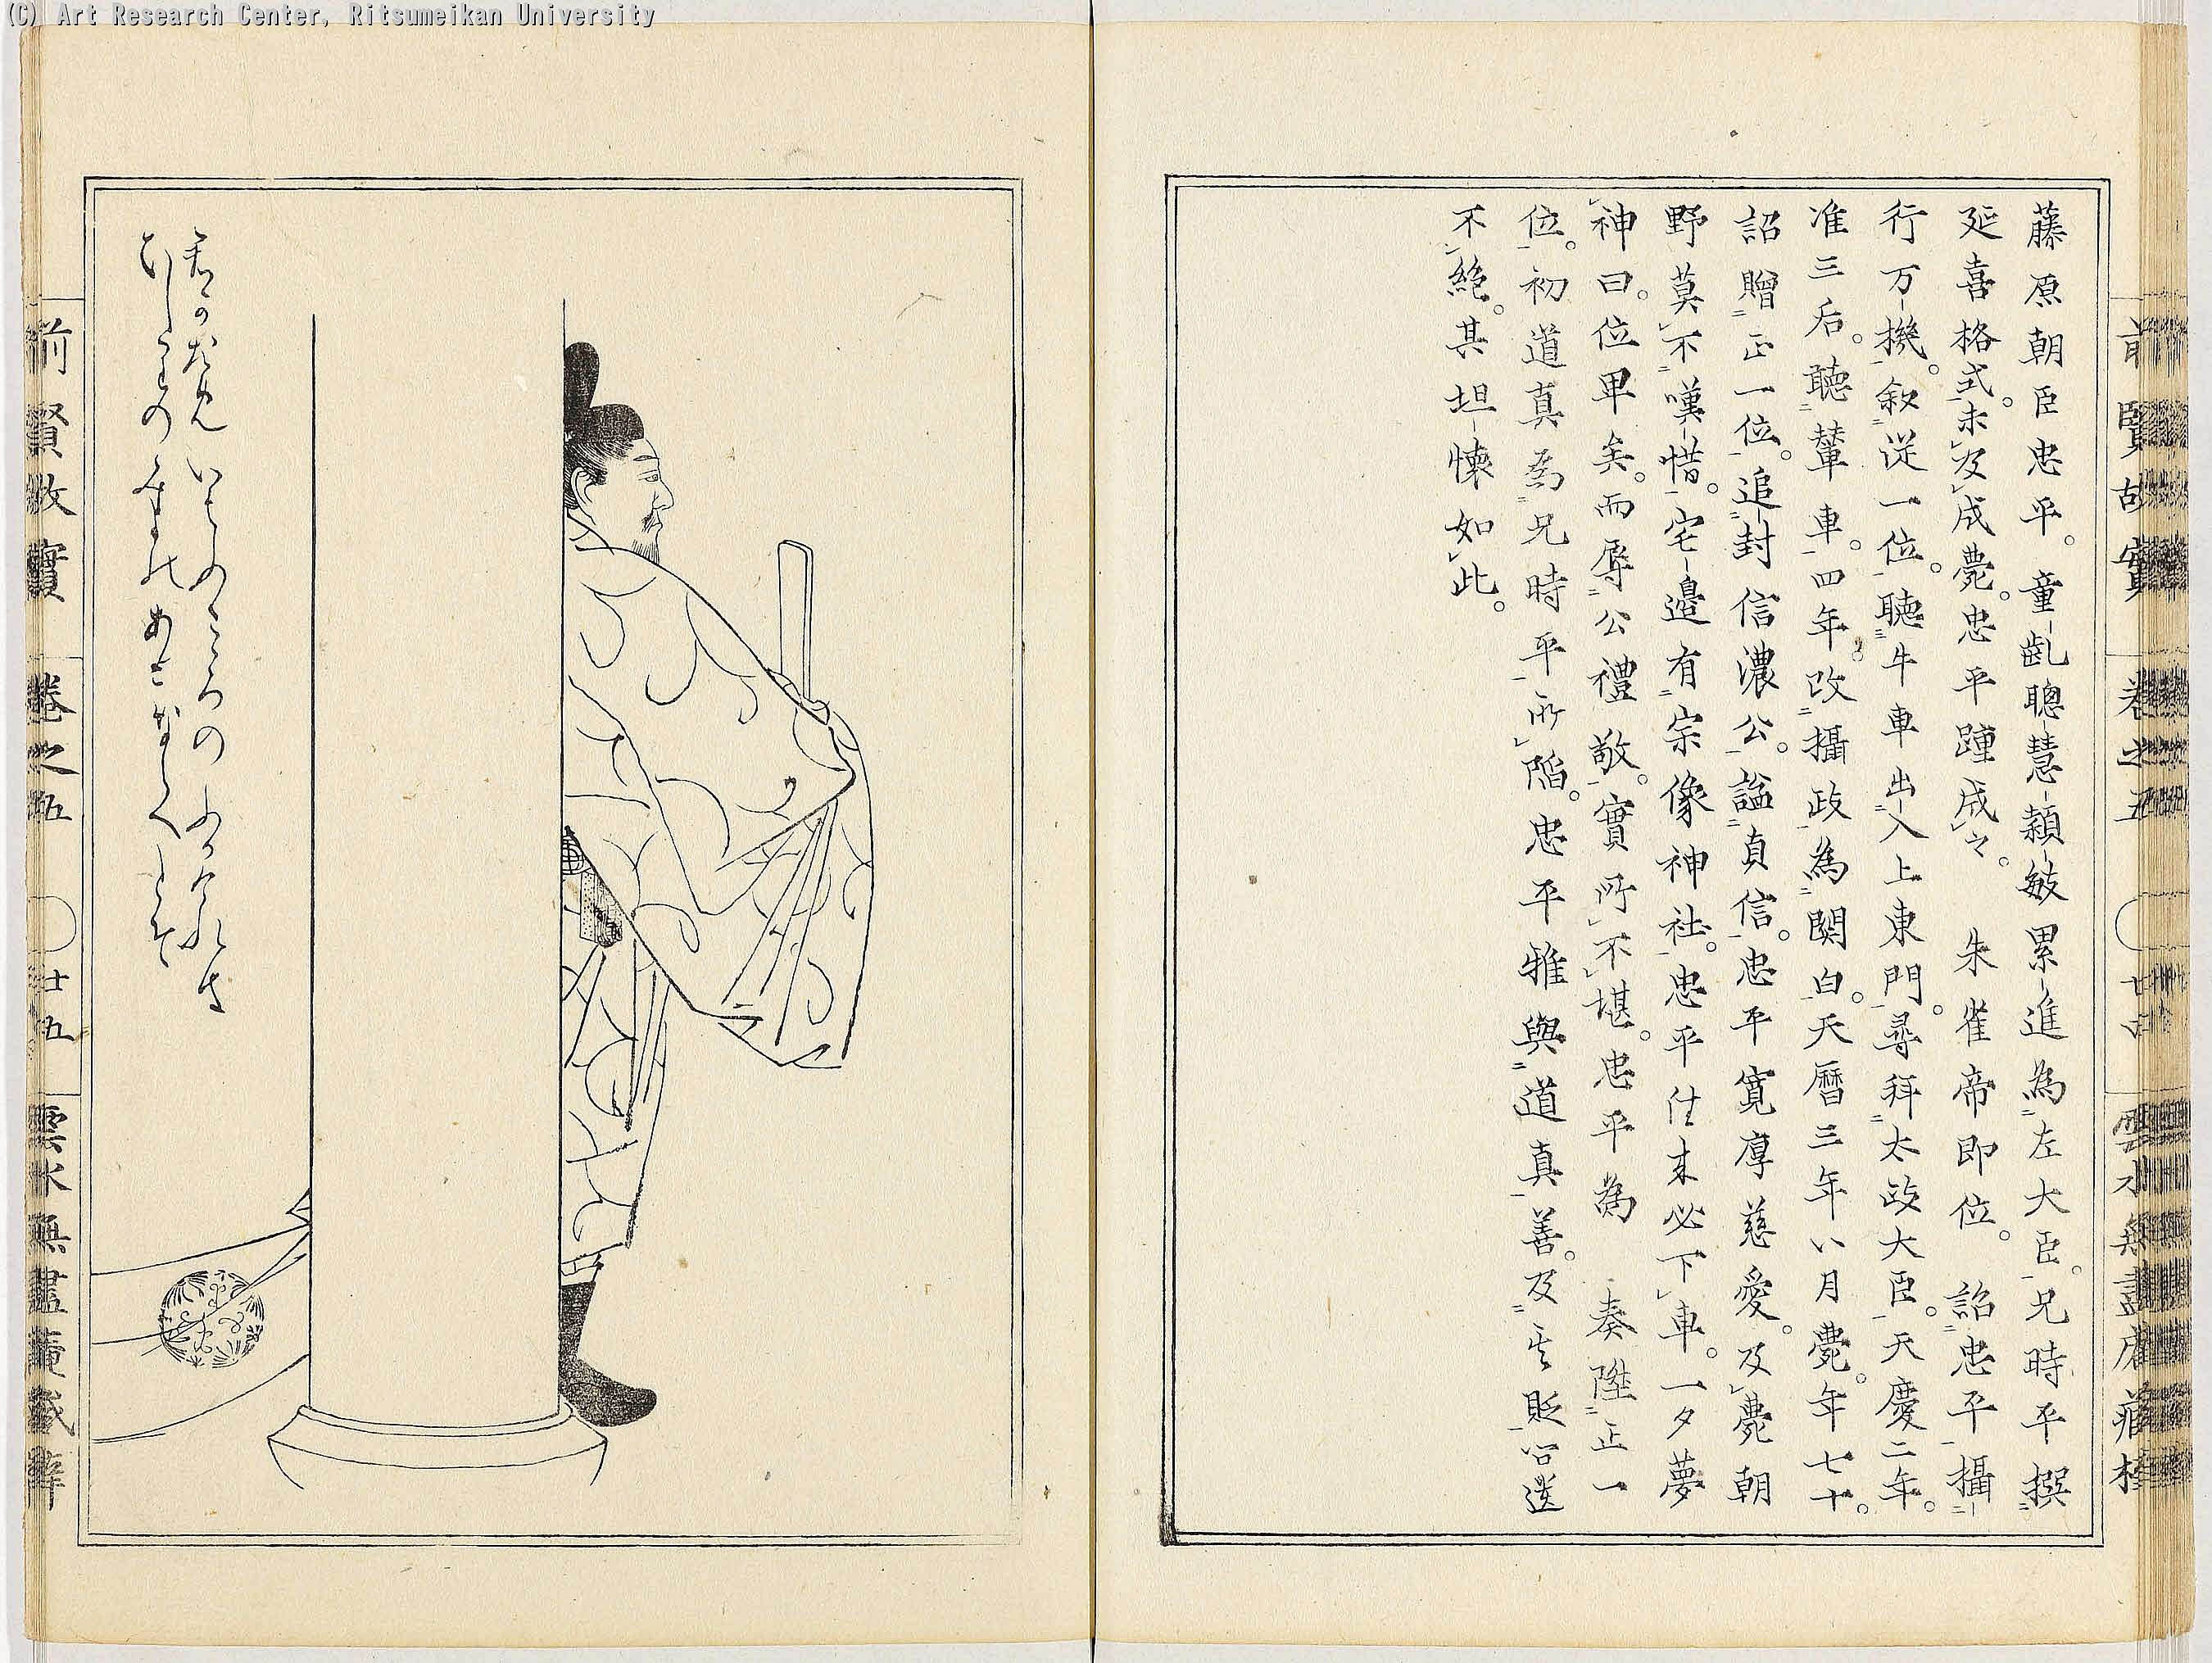 (C) Art Research Center, Ritsumeikan University
前賢故實 卷之五
藤原朝臣忠平。童齔聰慧穎敏累進為左大臣。兄時平撰
延喜格式。未及成薨。忠平踵成之。 朱雀帝即位。 詔忠平攝
行万機。叙従一位。聴牛車出入上東門。尋拜太政大臣。天慶二年。
准三后。聴輦車。四年。改攝政為関白。天曆三年八月薨。年七十。
詔贈正一位。追封信濃公。謚貞信。忠平寛厚慈愛。及薨朝
野莫不嘆惜。宅邉有宗像神社。忠平往来必下車。一夕夢
神曰。位卑矣。而辱公禮敬。實所不堪。忠平為 奏陞正一
位。初道真為兄時平所陥。忠平雅與道真善。及其貶
不絶。其坦懐如此。
前賢故實 卷之五 廿五 雲水無盡庵藏梓